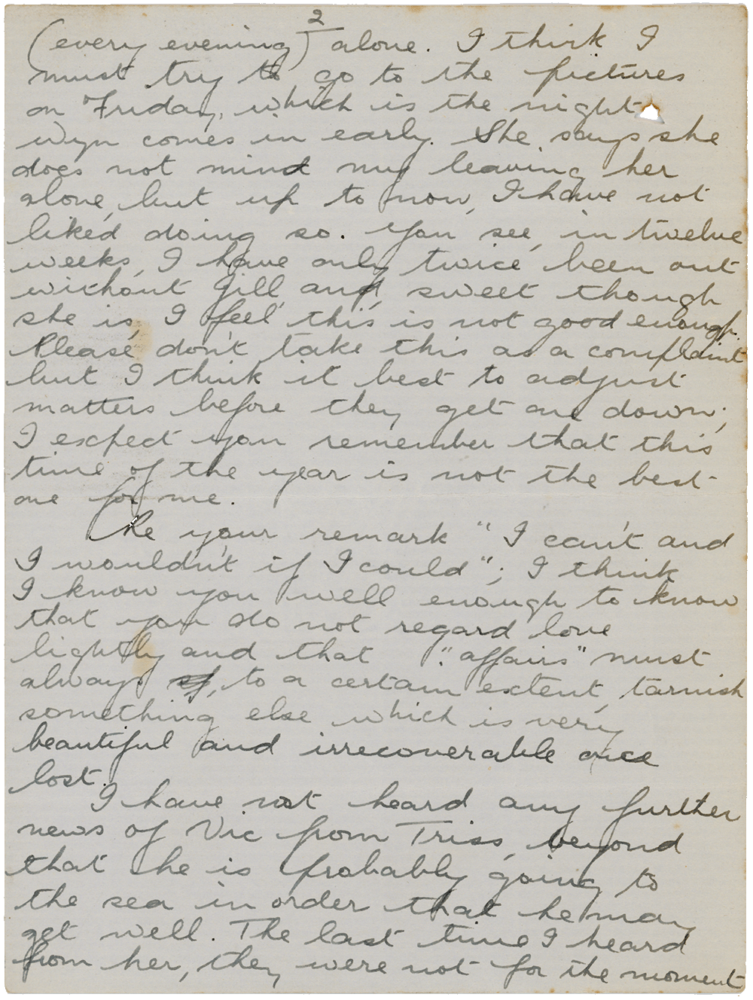 2
(every evening) alone. I think I
must try to go to the pictures
on Friday, which is the night
Wyn comes in early. She says she
does not mind my leaving her
alone, but up to now, I have not
liked doing so. You see, in twelve
weeks, I have only twice been out
without Gill and, sweet though
she is, I feel this is not good enough.
Please don't take this as a complaint
but I think it best to adjust
matters before they get one down;
I expect you remember that this
time of the year is not the best
one for me.
Re your remark "I can't and
I wouldn't if I could"; I think
I know you well enough to know
that you do not regard love
lightly and that "affairs" must
always, to a certain extent, tarnish
something else which is very
beautiful and irrecoverable once
lost.
I have not heard any further
news of Vic from Triss, beyond
that he is probably going to
the sea in order that he may
get well. The last time I heard
from her, they were not for the moment